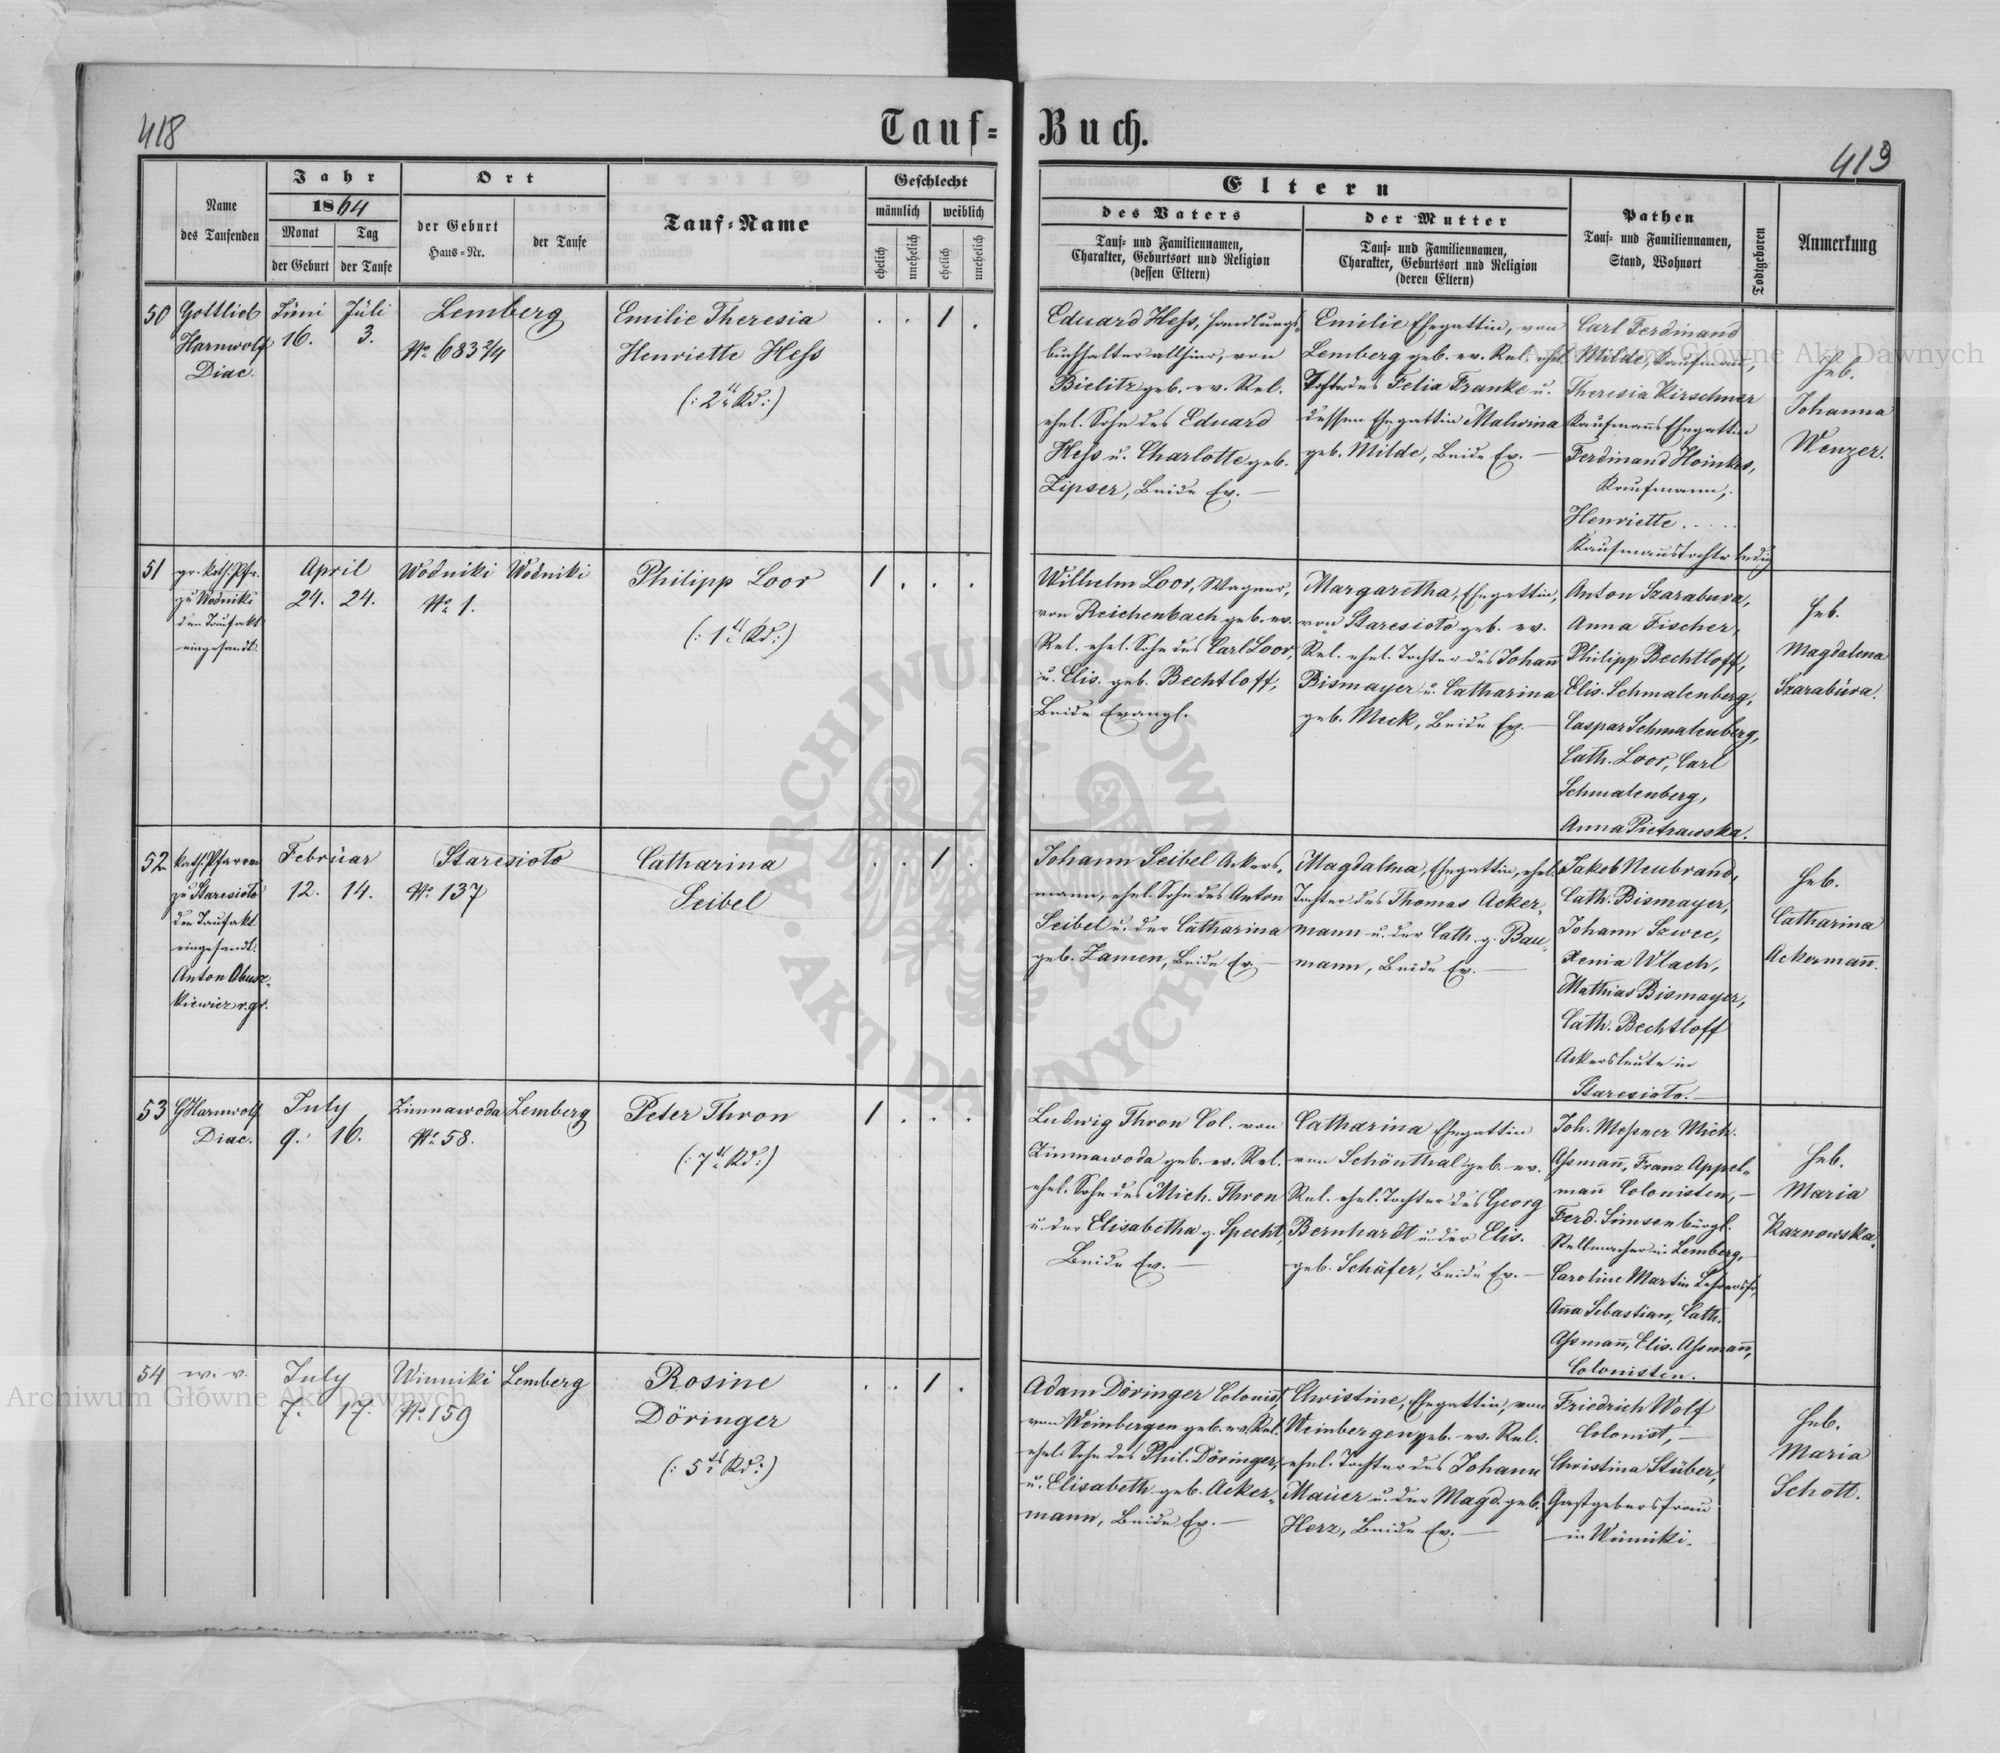 418
Tauf-Buch.
419
Name
des Taufenden
Jahr
1864
Monat
Tag
der Geburt
der Taufe
Ort
der Geburt
Haus-Nr.
der Taufe
Tauf-Name
Geschlecht
männlich
weiblich
ehelich
unehelich
ehelich
unehelich
Eltern
des Vaters
Tauf- und Familiennamen,
Charakter, Geburtsort und Religion
(dessen Eltern)
der Mutter
Tauf- und Familiennamen,
Charakter, Geburtsort und Religion
(deren Eltern)
Pathen
Tauf- und Familiennamen,
Stand, Wohnort
Todtgeboren
Anmerkung
50
Gottlieb
Harnwolf
Diac.
Juni
16.
Juli
3.
Lemberg
No 683 2/4
Emilie Theresia
Henriette Heſs
(: 2ts Kd :)
. . 1 .
Eduard Heſs, Handlungs-
buchhalter allhier, von
Bielitz geb. ev. Rel.
ehel. Sohn des Eduard
Heſs u. Charlotte geb.
Zipser, Beide Ev. —
Emilie Ehegattin, von
Lemberg geb. ev. Rel. ehel.
Tochter des Felix Franke u.
dessen Ehegattin Malwina
geb. Milde, Beide Ev. —
Carl Ferdinand
Milde, Kaufmann,
Theresia Kirschner
Kaufmanns Ehegattin
Ferdinand Hoinkes,
Kaufmann,
Henriette .....
Kaufmannstochter ledig
Heb.
Johanna
Wenzer.
51
gr. kath. Pfr.
zu Wodniki
den Taufakt
eingesandt.
April
24. 24.
Wodniki
No 1.
Wodniki
Philipp Loor
(: 1ts Kd :)
1 . . .
Wilhelm Loor, Wagner,
von Reichenbach geb. ev.
Rel. ehel. Sohn des Carl Loor,
u. Elis. geb. Bechtloff,
Beide Evangl.
Margaretha, Ehegattin,
von Staresioto geb. ev.
Rel. ehel. Tochter des Johann̄
Bismayer u. Catharina
geb. Meck, Beide Ev. —
Anton Szarabura,
Anna Fischer,
Philipp Bechtloff,
Elis. Schmalenberg,
Caspar Schmalenberg,
Cath. Loor, Carl
Schmalenberg,
Anna Pietrawska.
Heb.
Magdalena
Szarabúra.
52
kath. Pfarrer
zu Staresioto
den Taufakt
eingesandt.
Anton Abusz-
kiewicz r. gr.
Februar
12. 14.
Staresioto
No 137
Catharina
Seibel
. . 1 .
Johann Seibel Ackers-
mann, ehel. Sohn des Anton
Seibel u. der Catharina
geb. Zamen, Beide Ev. —
Magdalena, Ehegattin, ehel.
Tochter des Thomas Acker-
mann u. der Cath. g. Bau-
mann, Beide Ev. —
Jakob Neubrand,
Cath. Bismayer,
Johann Szwec,
Xenia Wlach,
Mathias Bismayer,
Cath. Bechtloff
Ackersleute in
Staresioto. —
Heb.
Catharina
Ackermañ.
53
G Harnwolf
Diac.
July
9. 16.
Zimnawoda
No 58.
Lemberg
Peter Thron
(: 7ts Kd :)
1 . . .
Ludwig Thron Col. von
Zimnawoda geb. ev. Rel.
ehel. Sohn des Mich. Thron
u. der Elisabetha g. Specht,
Beide Ev. —
Catharina Ehegattin
von Schönthal geb. ev.
Rel. ehel. Tochter des Georg
Bernhardt u. der Elis.
geb. Schäfer, Beide Ev. —
Joh. Moſsner Mich.
Aſsmañ, Franz Appel-
mañ Colonisten, —
Ferd. Simsen bürgl.
Stellmacher in Lemberg,
Caroline Martin
Aña Sebastian, Cath.
Aſsmañ, Elis. Aſsmañ,
Colonisten.
Heb.
Maria
Kaznowska.
54
w. v.
July
7. 17.
Winniki
No 159
Lemberg
Rosine
Döringer
(: 5ts Kd :)
. . 1 .
Adam Döringer Colonist,
von Weinbergen geb. ev. Rel.
ehel. Sohn des Phil. Döringer,
u. Elisabeth geb. Acker-
mann, Beide Ev. —
Christine, Ehegattin, von
Weinbergen geb. ev. Rel.
ehel. Tochter des Johann
Mauer u. der Magd. geb.
Herz, Beide Ev. —
Friedrich Wolf
Colonist, —
Christina Stüber,
Gastgebersfrau
in Winniki.
Heb.
Maria
Schott.
Archiwum Główne Akt Dawnych
Archiwum Główne Akt Dawnych
ARCHIWUM GŁÓWNE AKT DAWNYCH